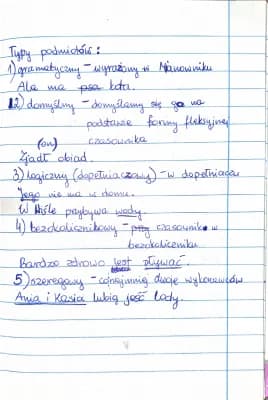 Typy podmiotów:
1) gramatyczny – wyrażony w Mianowniku
Ala ma psa kota.
2) domyślny – domyślamy się go na
podstawie formy fleksyjnej
(on) czasownika
Zjadł obiad.
3) logiczny (dopełniaczowy) – w dopełniaczu
Jego nie ma w domu.
W Wiśle przybywa wody.
4) bezokolicznikowy – czasownik w
bezokoliczniku
Bardzo zdrowo jest pływać.
5) szeregowy – conajmniej dwóję wykonawców
Ania i Kasia lubią jeść lody.